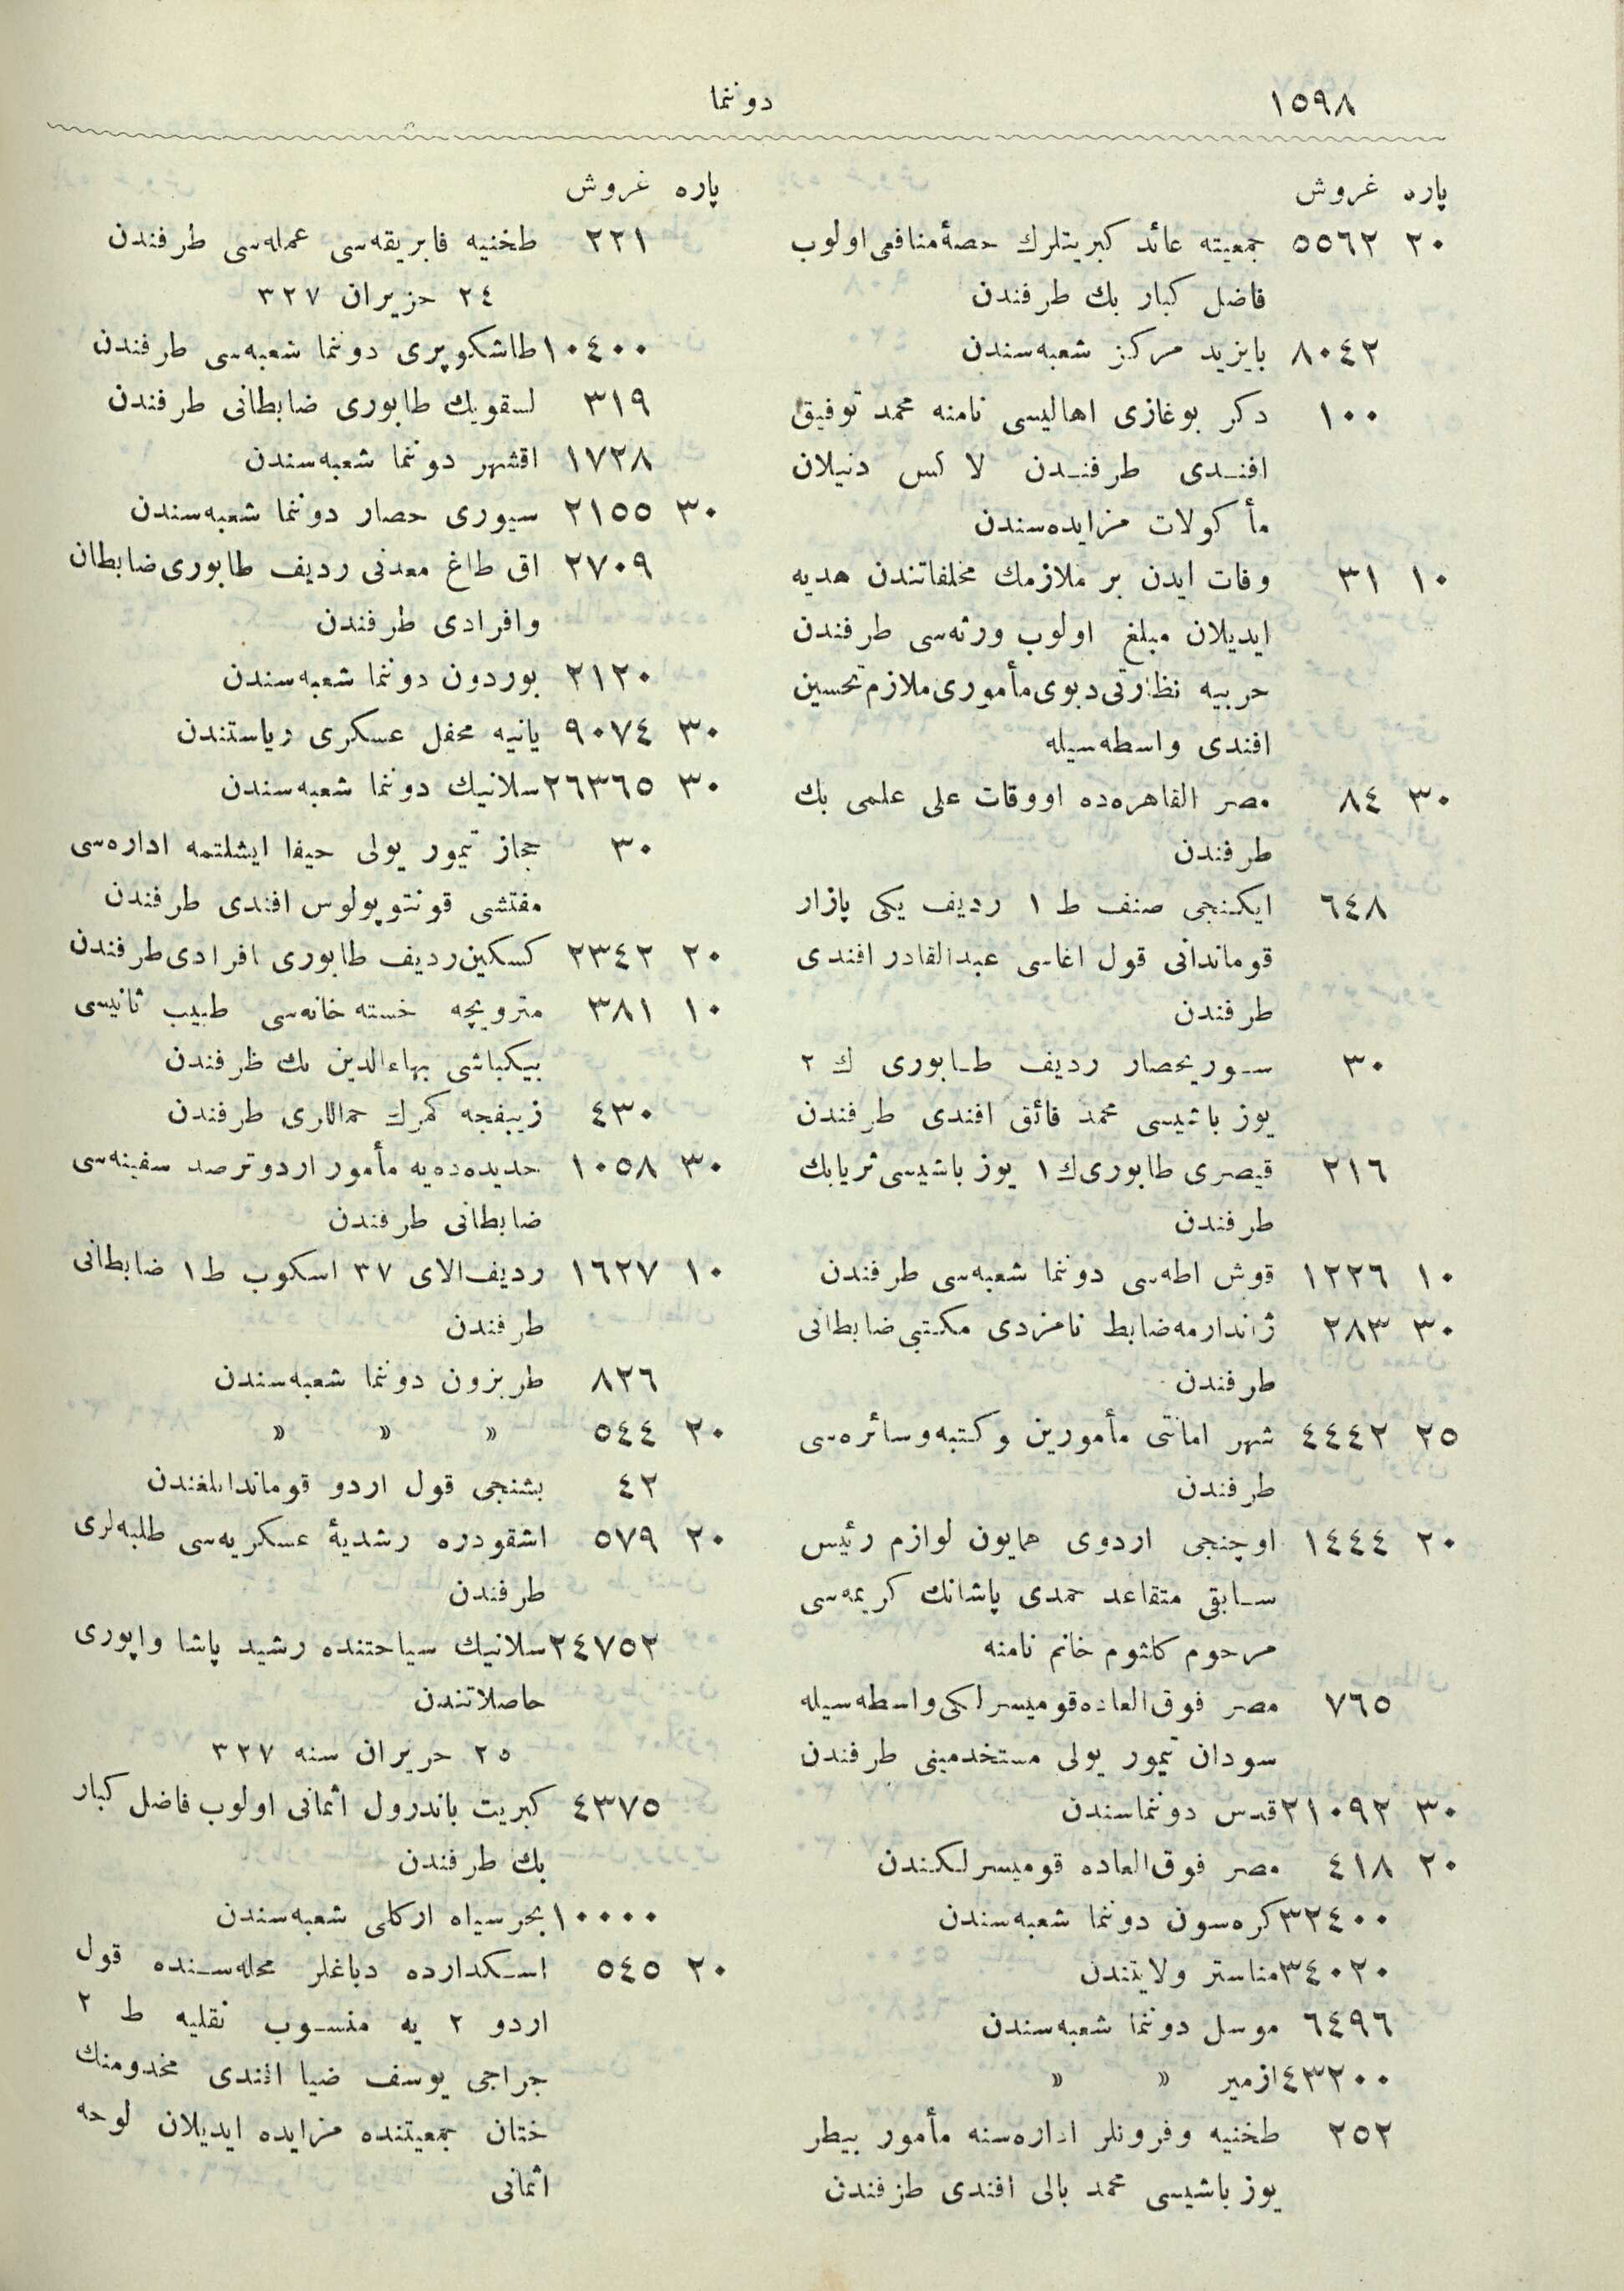 ١٥٩٨
دوننما
پاره غروش
٢٠ ٥٥٦٢ جمعيته عائد كبريتلرك حصۀ منافعى اولوب
فاضل كبار بك طرفندن
٨٠٤٢ بايزيد مركز شعبه‌سندن
١٠٠ دكر بوغازى اهاليسى نامنه محمد توفيق
افندى طرفندن لا كس دنيلان
مأكولات مزايده‌سندن
١٠ ٣١ وفات ايدن بر ملازمك مخلفاتندن هديه
ايديلان مبلغ اولوب ورثه‌سى طرفندن
حربيه نظارتى دبوى مأمورى ملازم تحسين
افندى واسطه‌سيله
٣٠ ٨٤ مصر القاهره‌ده اووقات على علمى بك
طرفندن
٦٤٨ ايكنجى صنف ط ١ رديف يكى پازار
قوماندانى قول اغاسى عبدالقادر افندى
طرفندن
٣٠ سوريحصار رديف طابورى ك ٢
يوز باشيسى محمد فائق افندى طرفندن
٢١٦ قيصرى طابورى ك ١ يوز باشيسى ثريا بك
طرفندن
١٠ ١٢٢٦ قوش اطه‌سى دوننما شعبه‌سى طرفندن
٣٠ ٢٨٣ ژاندارمه ضابط نامزدى مكتبى ضابطانى
طرفندن
٢٥ ٤٤٤٢ شهر امانتى مأمورين وكتبه وسائره‌سى
طرفندن
٢٠ ١٤٤٤ اوچنجى اردوى همايون لوازم رئيس
سابقى متقاعد حمدى پاشانك كريمه‌سى
مرحوم كلثوم خانم نامنه
٧٦٥ مصر فوق‌العاده قوميسرلكى واسطه‌سيله
سودان تيمور يولى مستخدمينى طرفندن
٣٠ ٢١٠٩٢ قدس دوننماسندن
٢٠ ٤١٨ مصر فوق‌العاده قوميسرلكندن
٣٢٤٠٠ كره‌سون دوننما شعبه‌سندن
٣٤٠٢٠ مناستر ولايتندن
٦٤٩٦ موسل دوننما شعبه‌سندن
٤٣٢٠٠ ازمير » »
٢٥٢ طخنيه وفرونلر اداره‌سنه مأمور بيطر
يوز باشيسى محمد بالى افندى طرفندن
پاره غروش
٢٢١ طخنيه فابريقه‌سى عمله‌سى طرفندن
٢٤ حزيران ٣٢٧
١٠٤٠٠ طاشكوپرى دوننما شعبه‌سى طرفندن
٣١٩ لسقويك طابورى ضابطانى طرفندن
١٧٢٨ اقشهر دوننما شعبه‌سندن
٣٠ ٢١٥٥ سيورى حصار دوننما شعبه‌سندن
٢٧٠٩ اق طاغ معدنى رديف طابورى ضابطان
وافرادى طرفندن
٢١٢٠ بوردون دوننما شعبه‌سندن
٣٠ ٩٠٧٤ يانيه محفل عسكرى رياستندن
٣٠ ٢٦٣٦٥ سلانيك دوننما شعبه‌سندن
٣٠ حجاز تيمور يولى حيفا ايشلتمه اداره‌سى
مفتشى قونتوپولوس افندى طرفندن
٢٠ ٢٣٤٢ كسكين رديف طابورى افرادى طرفندن
١٠ ٣٨١ متروبچه خسته خانه‌سى طبيب ثانيسى
بيكباشى بهاءالدين بك طرفندن
٤٣٠ زيبفجه كمرك حماللرى طرفندن
٣٠ ١٠٥٨ حديده‌ده‌يه مأمور اردو ترصد سفينه‌سى
ضابطانى طرفندن
١٠ ١٦٢٧ رديف الاى ٣٧ اسكوب ط ١ ضابطانى
طرفندن
٨٢٦ طربزون دوننما شعبه‌سندن
٢٠ ٥٤٤ » » »
٤٢ بشنجى قول اردو قوماندانلغندن
٢٠ ٥٧٩ اشقودره رشديۀ عسكريه‌سى طلبه‌لرى
طرفندن
٢٤٧٥٢ سلانيك سياحتنده رشيد پاشا واپورى
حاصلاتندن
٢٥ حزيران سنه ٣٢٧
٤٣٧٥ كبريت باندرول اثمانى اولوب فاضل كبار
بك طرفندن
١٠٠٠٠ بحرسياه اركلى شعبه‌سندن
٢٠ ٥٤٥ اسكدارده دباغلر محله‌سنده قول
اردو ٢ يه منسوب نقليه ط ٢
جراجى يوسف ضيا افندى مخدومنك
ختان جمعيتنده مزايده ايديلان لوحه
اثمانى